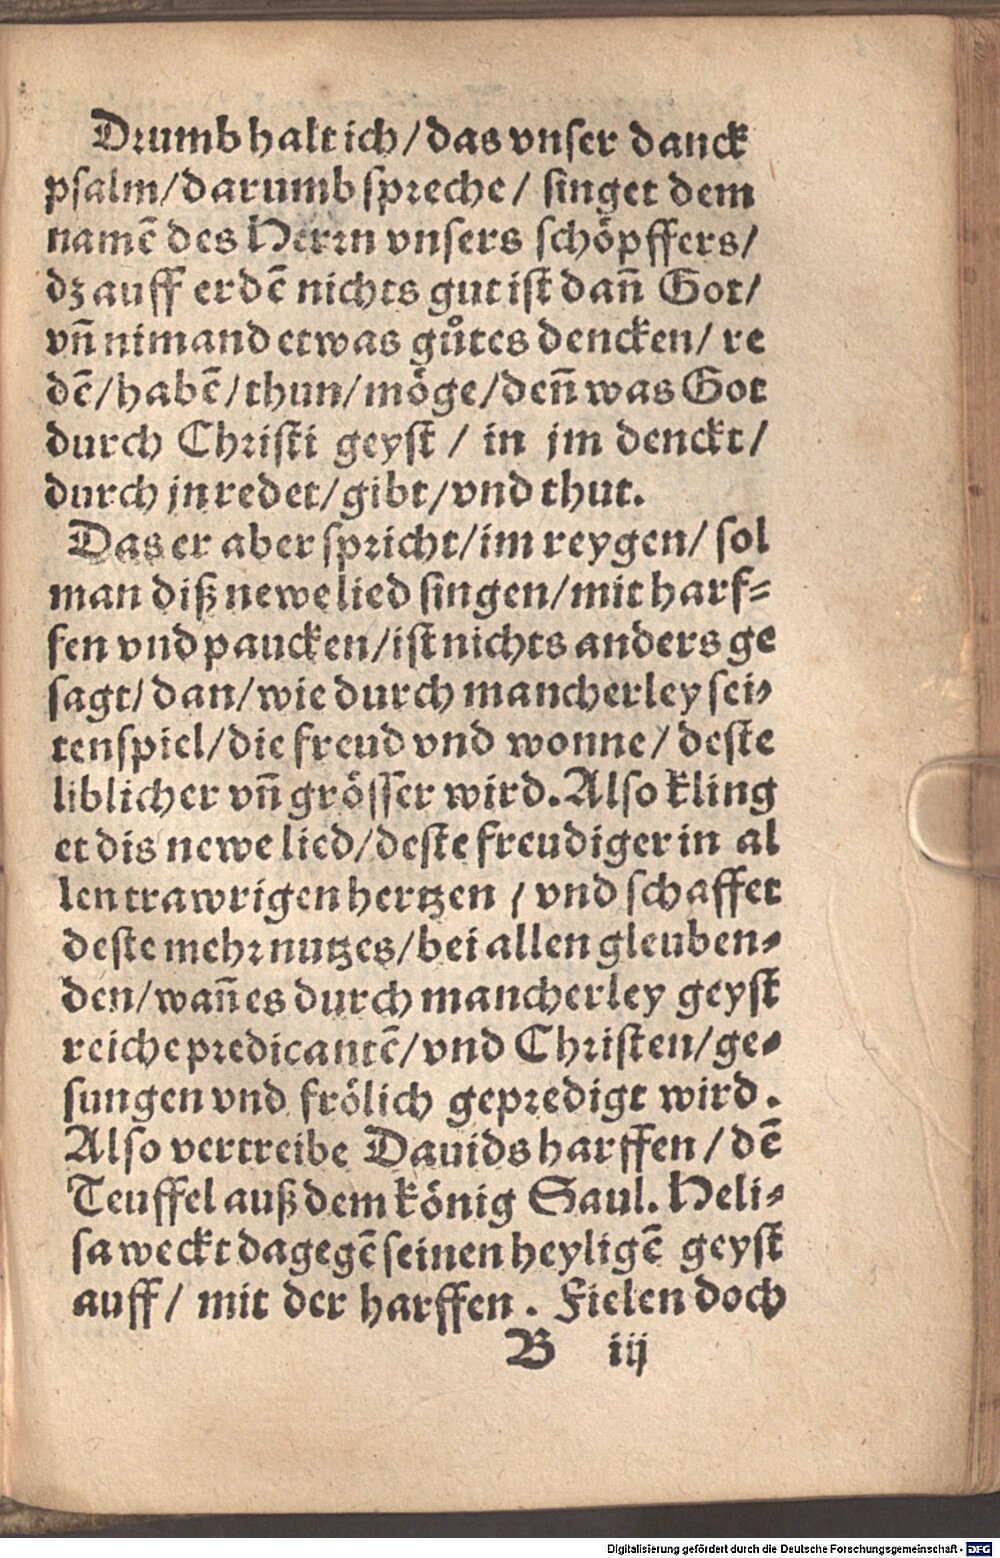 Drumb halt ich/das vnser danck
psalm/darumb spreche/ singet dem
namē des Herrn vnsers schöpffers/
dz auff erdē nichts gut ist dañ Got/
vñ nimand etwas gůtes dencken/ re
dē/habē/thun/möge/deñ was Got
durch Christi geyst / in jm denckt/
durch jn redet/gibt/vnd thut.
Das er aber spricht/im reygen/ sol
man diß newe lied singen/mit harf-
fen vnd paucken/ist nichts anders ge
sagt/ dan/wie durch mancherley sei-
tenspiel/die freud vnd wonne/ deste
liblicher vñ grösser wird. Also kling
et dis newe lied/deste freudiger in al
len trawrigen hertzen / vnd schaffet
deste mehr nutzes/bei allen gleuben-
den/wañ es durch mancherley geyst
reiche predicantē/vnd Christen/ge-
sungen vnd frölich gepredigt wird.
Also vertreibe Dauids harffen / dē
Teuffel auß dem könig Saul. Heli-
sa weckt dagegē seinen heyligē geyst
auff/ mit der harffen. Fielen doch
B iij
Digitalisierung gefördert durch die Deutsche Forschungsgemeinschaft - DFG